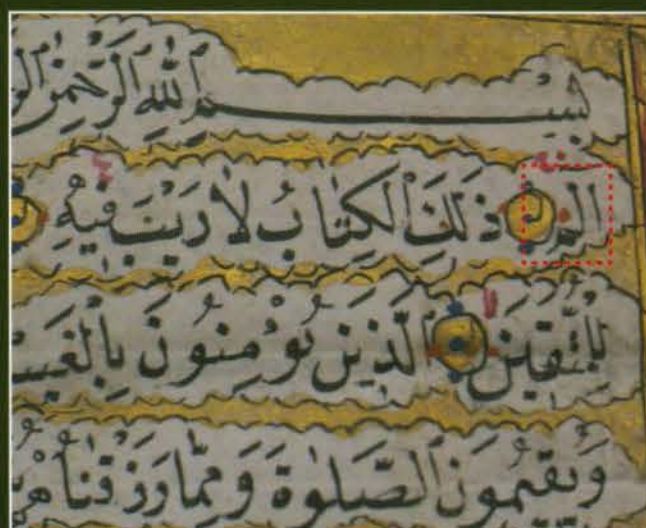 بِسْمِ اللهِ الرَّحْمٰنِ
الم ذٰلِكَ الْكِتَابُ لَا رَيْبَ فِيهِ
لِلْمُتَّقِينَ الَّذِينَ يُؤْمِنُونَ بِالْغَيْبِ
وَيُقِيمُونَ الصَّلٰوةَ وَمِمَّا رَزَقْنَاهُمْ